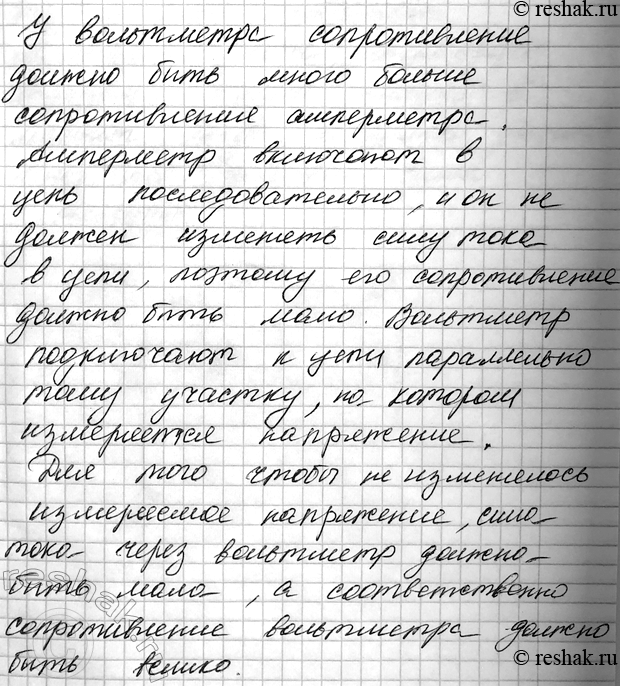 © reshak.ru
У вольтметра сопротивление
должно быть много больше
сопротивление амперметра.
Амперметр включают в
цепь последовательно, и он не
должен изменять силу тока
в цепи, поэтому его сопротивление
должно быть мало. Вольтметр
подключают к цепи параллельно
тому участку, на котором
измеряется напряжение.
Для того чтобы не изменялось
измеряемое напряжение, сила
тока через вольтметр должна
быть мала, а соответственно
сопротивление вольтметра должно
быть велико.
reshak.ru